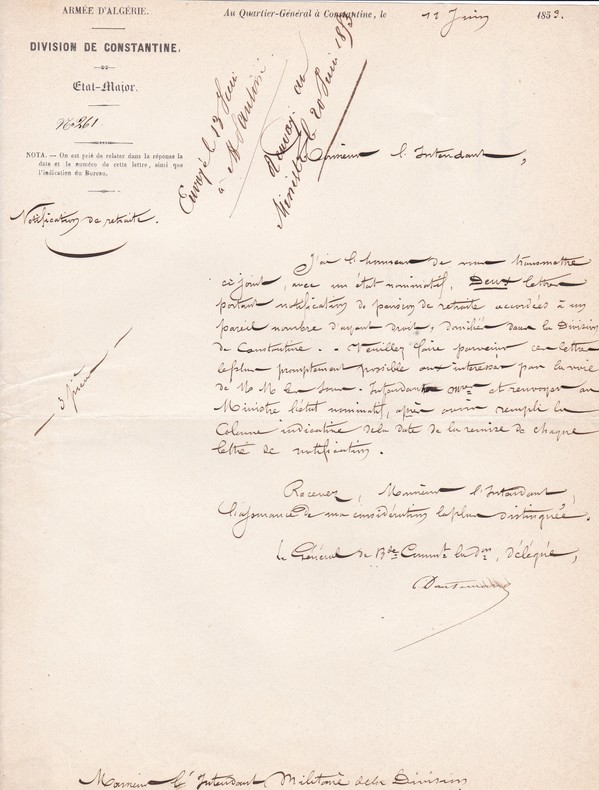 ARMÉE D'ALGÉRIE.
DIVISION DE CONSTANTINE.
Etat-Major.
No 261
NOTA. — On est prié de relater dans la réponse la
date et le numéro de cette lettre, ainsi que
l'indication du Bureau.
Notification de retraite.
Au Quartier-Général à Constantine, le 11 Juin 1853.
Envoyé le 13 Juin
à Mr
Renvoyé au
Ministre le 20 Juin 1853
Monsieur l'Intendant,
J'ai l'honneur de vous transmettre
ci joint, avec un état nominatif, Deux lettres
portant notification de pension de retraite accordées à un
pareil nombre d'ayant droit, domiciliés dans la Division
de Constantine. Veuillez faire parvenir ces lettres
le plus promptement possible aux intéressés par la voie
de M M les Sous-Intendants et renvoyer au
Ministre l'état nominatif, après avoir rempli la
Colonne indicative de la date de la remise de chaque
lettre de notification.
3 pièces
Recevez, Monsieur l'Intendant,
l'assurance de ma considération la plus distinguée.
Le Général de Bde Commt la Don, délégué,
Monsieur l'Intendant Militaire de la Division